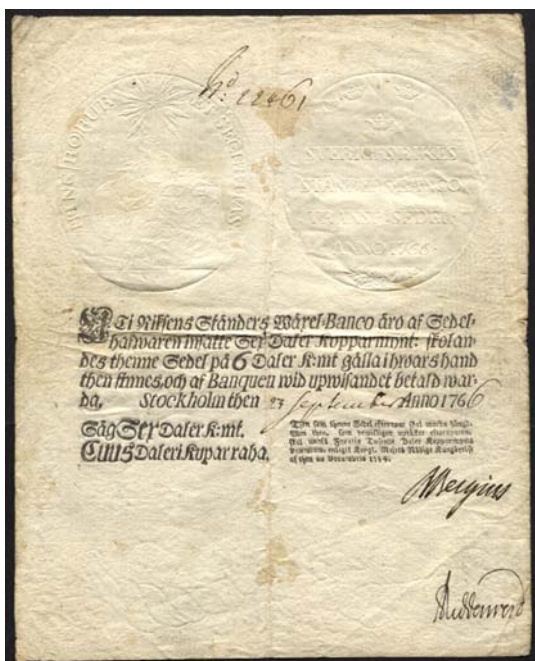 No: 22461
HINC ROBUR
SECURITAS
SWERIGES RIKES
STÄNDERS
ANNO 1766
UTi Riksens Ständers Wäxel-Banco äro af Sedel-
hafwaren insatte Sex Daler Kopparmynt: skolan-
des thenne Sedel på 6 Daler K:mt gälla i hwars hand
then finnes, och af Banquen wid upwisandet betald war-
da. Stockholm then 23 September Anno 1766
Säg Sex Daler K:mt.
CUUS Daleri Kupar raha.
Then som thenne Sedel efterapar skal warda hängd.
Men then, som bewisligen uptäcker efteraparen,
Daler Kopparmynt
Kongl. Majets Nådige Kungörelse
Bergius